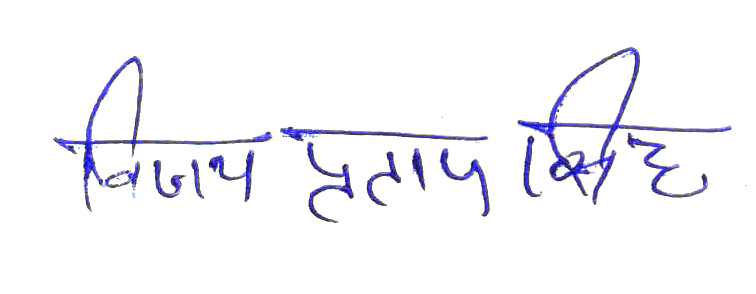 विजय प्रताप सिंह